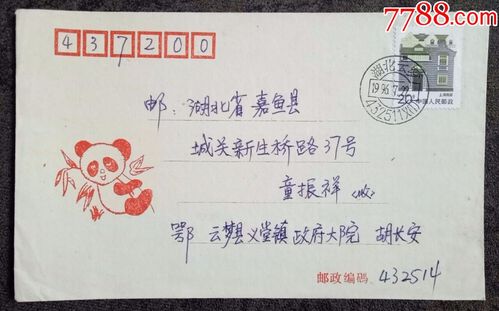 7788.com
437200
湖北云梦
1996.7.22
432511(XI)
20
上海民居
中国人民邮政
邮: 湖北省嘉鱼县
城关新生桥路37号
童振祥(收)
鄂 云梦县义堂镇政府大院 胡长安
邮政编码 432514